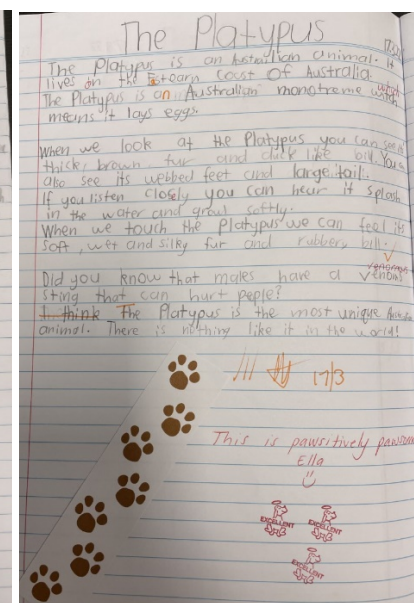 The Platypus
The Platypus is an Australian animal. It
lives on the Estearn coast of Australia.
The Platypus is an Australian monotreme which
means it lays eggs.
When we look at the Platypus you can see it
thick, brown fur and duck like bill. You
also see its webbed feet and large tail.
If you listen closely you can hear it splash
in the water and growl softly.
When we touch the Platypus we can feel its
soft, wet and silky fur and rubbery bill.
venomous
Did you know that males have a venoms
sting that can hurt peple?
I think The Platypus is the most unique
animal. There is nothing like it in the world!
17/3
This is pawsitively
Ella
EXCELLENT
EXCELLENT
EXCELLENT